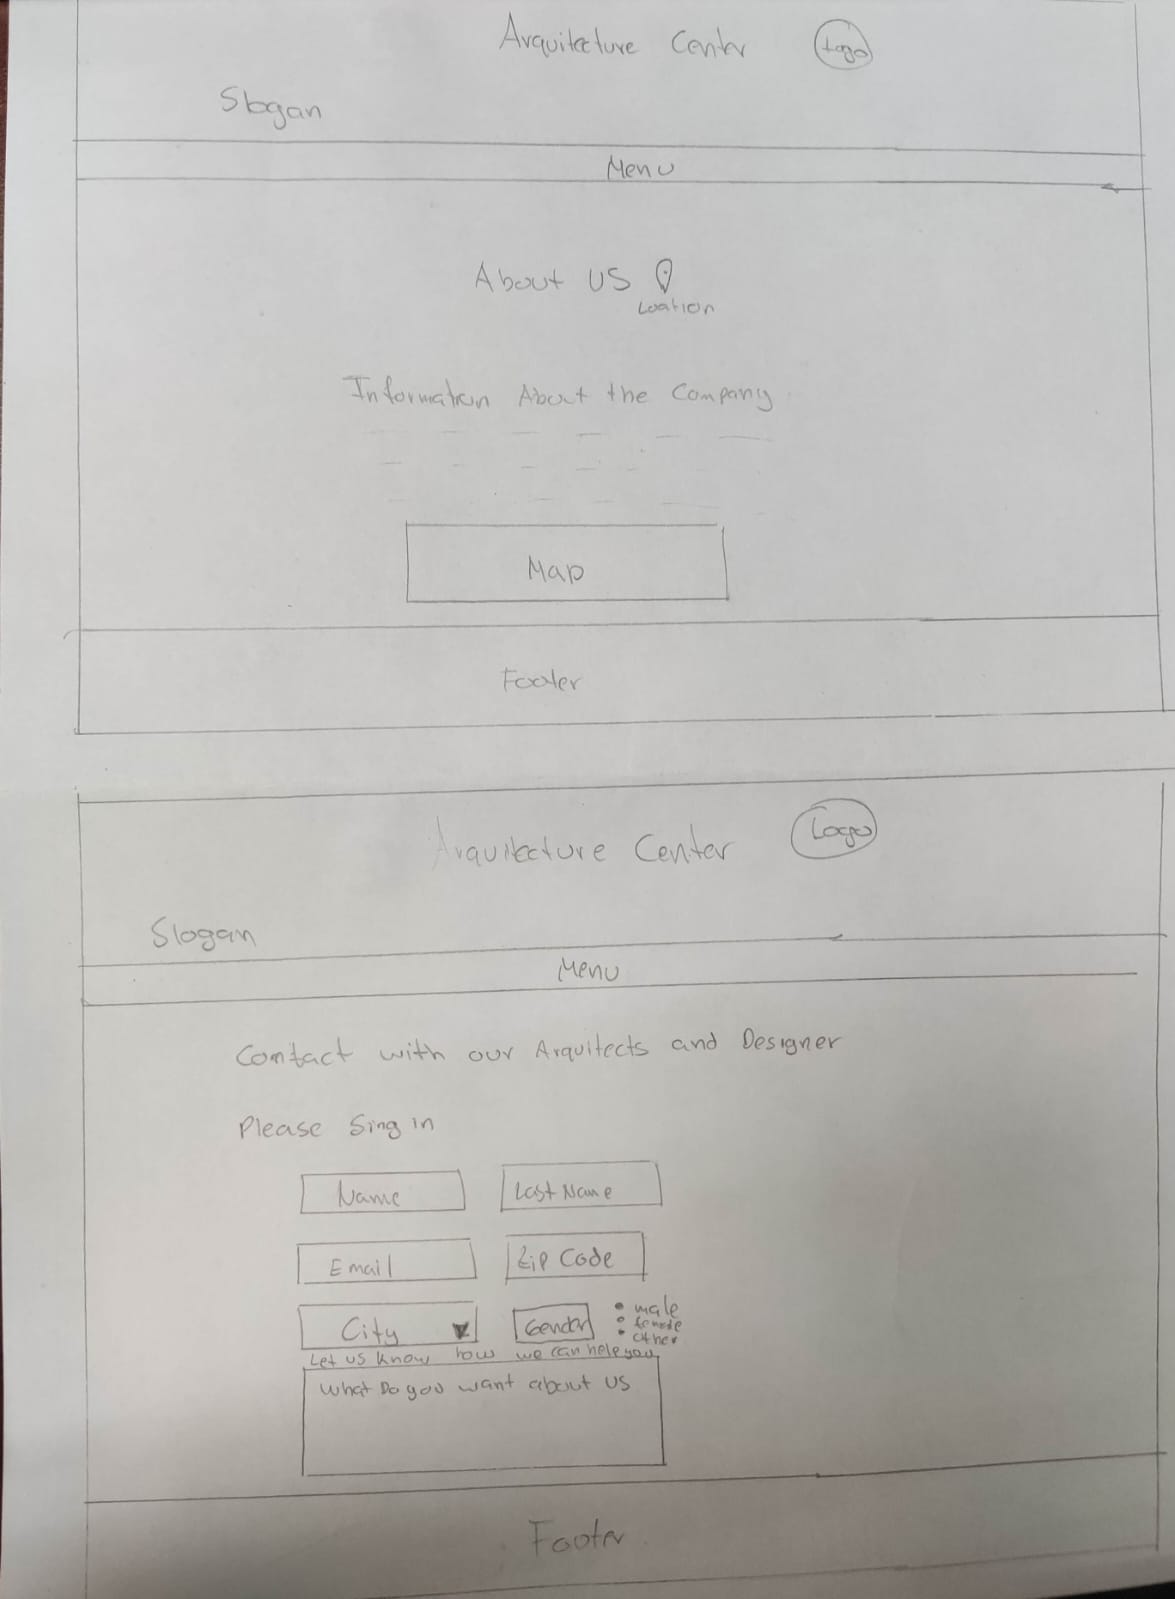 Arquitecture Center Logo
Slogan
Menu
About US
Loation
Information About the Company
Map
Footer
Arquitecture Center Logo
Slogan
Menu
Contact with our Arquitects and Designer
Please Sing in
Name Last Name
Email Zip Code
City Gender
male
female
other
Let us know how we can help you
What Do you want about us
Footer